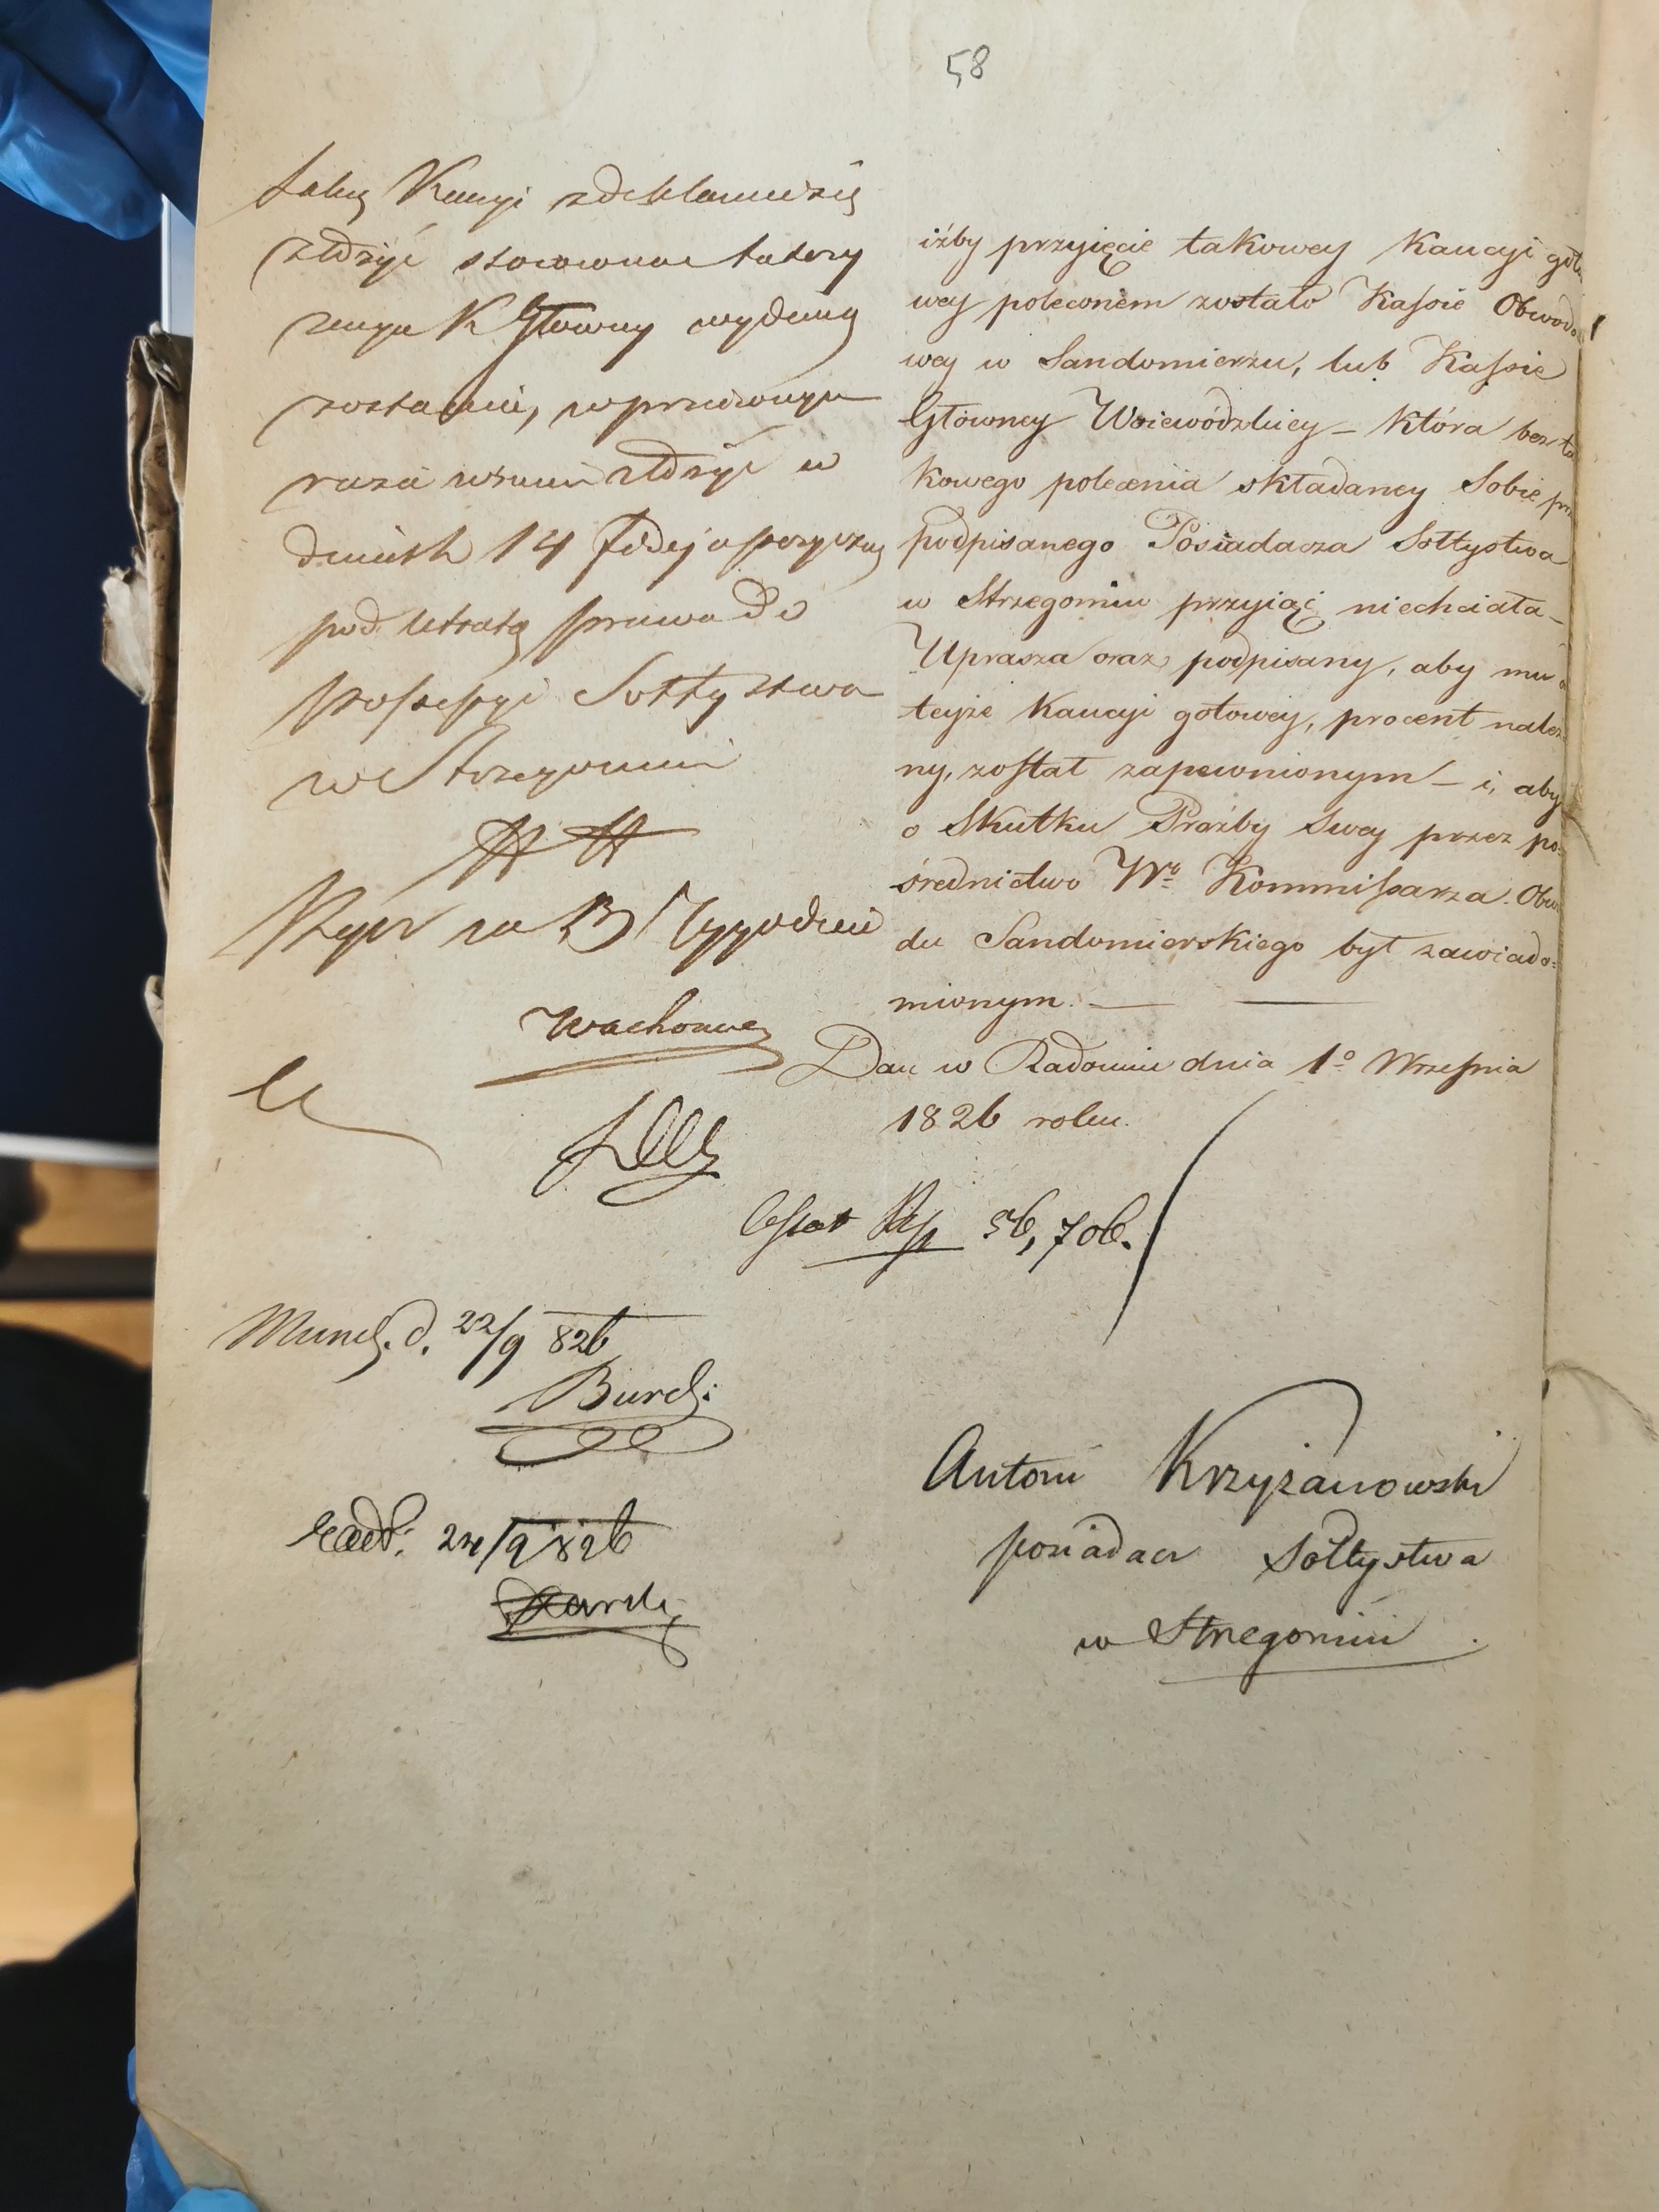 58
taką Kaucyi zdeklarowaną
złożyć stosowne
K Główney wydany
zostanie, w przeciwnym
razie winien złożyć w
dniach 14 fidejussoryczną
pod utratą prawa do
possessyi Sołtystwa
w Strzegomiu
na 3 Tygodnie
iżby przyięcie takowey Kaucyi goto
wey poleconem zostało Kassie Obwodo
wey w Sandomierzu, lub Kassie
Główney Woiewódzkiey – która bez ta
kowego polecenia składaney Sobie prz
podpisanego Posiadacza Sołtystwa
w Strzegomiu przyiąć niechciała –
Uprasza oraz podpisany, aby mu o
teyże Kaucyi gotowey, procent należ=
ny, został zapewnionym – i, aby
o Skutku Prożby Swey przez po=
średnictwo Wo Kommissarza Obwo
du Sandomierskiego był zawiado=
mionym. —
Dan w Radomiu dnia 1o Września
1826 roku.
56,706.
Mund. d. 22/9 826
24/9 826
Antoni Krzyżanowski
posiadacz Sołtystwa
w Strzegomiu